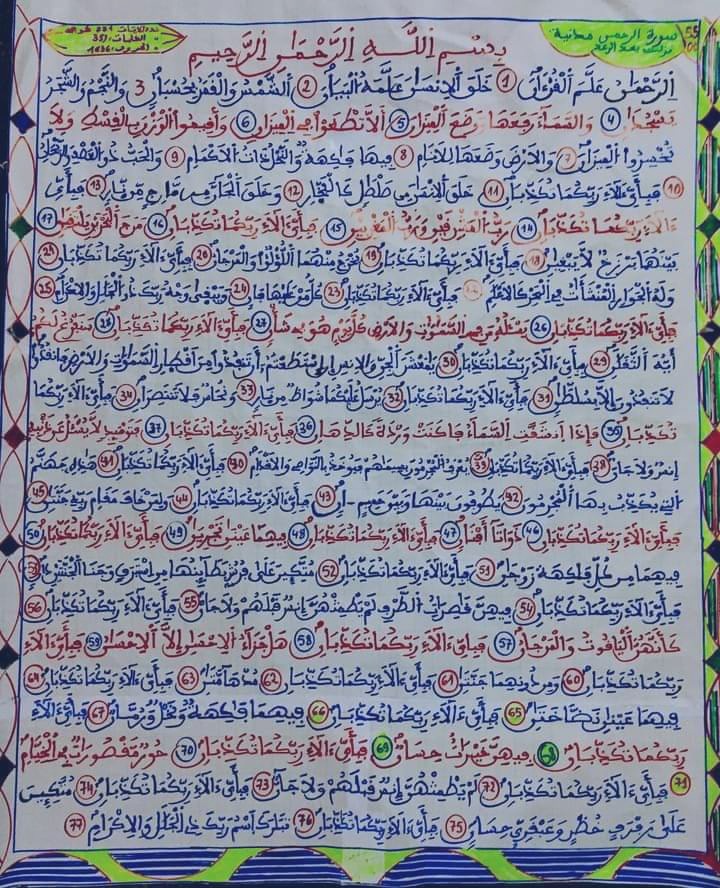 55 سورة الرحمن مدنية
نزلت بعد الرعد
الكلمات: 351
الحروف: 1636
بسم الله الرحمن الرحيم
الرحمن علم القرءان 1 خلق الانسان علمه البيان 2 الشمس والقمر بحسبان 3 والنجم والشجر
يسجدان 4 والسماء رفعها ووضع الميزان 5 ألا تطغوا في الميزان 6 وأقيموا الوزن بالقسط ولا
تخسروا الميزان 7 والارض وضعها للانام 8 فيها فاكهة والنخل ذات الاكمام 9 والحب ذو العصف والريحان
10 فبأي ءالاء ربكما تكذبان 11 خلق الانسان من صلصال كالفخار 12 وخلق الجان من مارج من نار 13 فبأي
ءالاء ربكما تكذبان 14 رب المشرقين ورب المغربين 15 فبأي ءالاء ربكما تكذبان 16 مرج البحرين يلتقيان 17
بينهما برزخ لا يبغيان 18 فبأي ءالاء ربكما تكذبان 19 يخرج منهما اللؤلؤ والمرجان 20 فبأي ءالاء ربكما تكذبان 21
وله الجوار المنشآت في البحر كالاعلام 22 فبأي ءالاء ربكما تكذبان 23 كل من عليها فان 24 ويبقى وجه ربك ذو الجلال والاكرام 25
فبأي ءالاء ربكما تكذبان 26 يسئله من في السماوات والارض كل يوم هو في شأن 27 فبأي ءالاء ربكما تكذبان 28 سنفرغ لكم
أيه الثقلان 29 فبأي ءالاء ربكما تكذبان 30 يامعشر الجن والانس إن استطعتم أن تنفذوا من أقطار السماوات والارض فانفذوا
لا تنفذون إلا بسلطان 31 فبأي ءالاء ربكما تكذبان 32 يرسل عليكما شواظ من نار 33 ونحاس فلا تنتصران 34 فبأي ءالاء ربكما
تكذبان 35 فإذا انشقت السماء فكانت وردة كالدهان 36 فبأي ءالاء ربكما تكذبان 37 فيومئذ لا يسئل عن ذنبه
إنس ولا جان 38 فبأي ءالاء ربكما تكذبان 39 يعرف المجرمون بسيماهم فيوخذ بالنواصي والاقدام 40 فبأي ءالاء ربكما تكذبان 41 هذه جهنم
التي يكذب بها المجرمون 42 يطوفون بينها وبين حميم ءان 43 فبأي ءالاء ربكما تكذبان 44 ولمن خاف مقام ربه جنتان 45
فبأي ءالاء ربكما تكذبان 46 ذواتا أفنان 47 فبأي ءالاء ربكما تكذبان 48 فيهما عينان تجريان 49 فبأي ءالاء ربكما تكذبان 50
فيهما من كل فاكهة زوجان 51 فبأي ءالاء ربكما تكذبان 52 متكئين على فرش بطائنها من استبرق وجنا الجنتين دان 53
فبأي ءالاء ربكما تكذبان 54 فيهن قاصرات الطرف لم يطمثهن إنس قبلهم ولا جان 55 فبأي ءالاء ربكما تكذبان 56
كأنهن الياقوت والمرجان 57 فبأي ءالاء ربكما تكذبان 58 هل جزاء الاحسان إلا الاحسان 59 فبأي ءالاء
ربكما تكذبان 60 ومن دونهما جنتان 61 فبأي ءالاء ربكما تكذبان 62 مدهامتان 63 فبأي ءالاء ربكما تكذبان 64
فيهما عينان نضاختان 65 فبأي ءالاء ربكما تكذبان 66 فيهما فاكهة ونخل ورمان 67 فبأي ءالاء
ربكما تكذبان 68 فيهن خيرات حسان 69 فبأي ءالاء ربكما تكذبان 70 حور مقصورات في الخيام
71 فبأي ءالاء ربكما تكذبان 72 لم يطمثهن إنس قبلهم ولا جان 73 فبأي ءالاء ربكما تكذبان 74 متكئين
على رفرف خضر وعبقري حسان 75 فبأي ءالاء ربكما تكذبان 76 تبارك اسم ربك ذي الجلال والاكرام 77